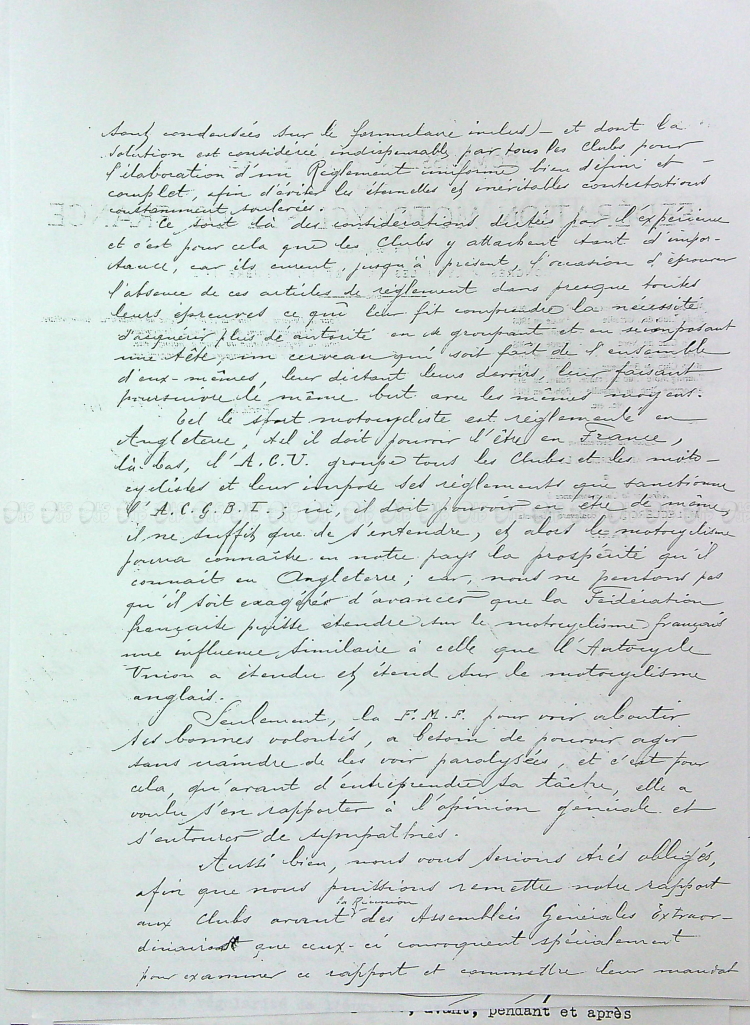 sont condensées sur le formulaire inclus) – et dont la
solution est considérée indispensable par tous les Clubs pour
l'élaboration d'un Règlement uniforme bien défini et
complet, afin d'éviter les éternelles et inévitables contestations
constamment soulevées.
Ce sont là des considérations dictées par l'expérience
et c'est pour cela que les Clubs y attachent tant d'impor-
tance, car ils eurent, jusqu'à présent, l'occasion d'éprouver
l'absence de ces articles de règlement dans presque toutes
leurs épreuves ce qui leur fit comprendre la nécessité
d'acquérir plus de autorité en se groupant et en se imposant
une tête un cerveau qui soit fait de l'ensemble
d'eux-mêmes, leur dictant leurs devoirs, leur faisant
poursuivre le même but avec les mêmes moyens.
Tel le sport motocycliste est réglementé en
Angleterre, tel il doit pouvoir l'être en France,
là-bas, l'A.C.U. groupe tous les Clubs et les moto-
cyclistes et leur impose ses règlements que sanctionne
l'A.C.G.B.I ; ici, il doit pouvoir en être de même,
il ne suffit que de s'entendre, et alors le motocyclisme
pourra connaître en notre pays la prospérité qu'il
connait en Angleterre ; car, nous ne pensons pas
qu'il soit exagéré d'avancer que la Fédération
française puisse étendre sur le motocyclisme français
une influence similaire à celle que l'Autocycle
Union a étendu et étend sur le motocyclisme
anglais.
Seulement, la F.M.F. pour voir aboutir
ses bonnes volontés, a besoin de pouvoir agir
sans craindre de les voir paralysées, et c'est pour
cela, qu'avant d'entreprendre sa tâche, elle a
voulu s'en rapporter à l'opinion générale et
s'entourer de sympathies.
Aussi bien, nous vous serions très obligés,
afin que nous puissions remettre notre rapport
la Réunion
aux Clubs avant des Assemblées Générales Extraor-
dinaires que ceux-ci convoquent spécialement
pour examiner ce rapport et commettre leur mandat
avant, pendant et après